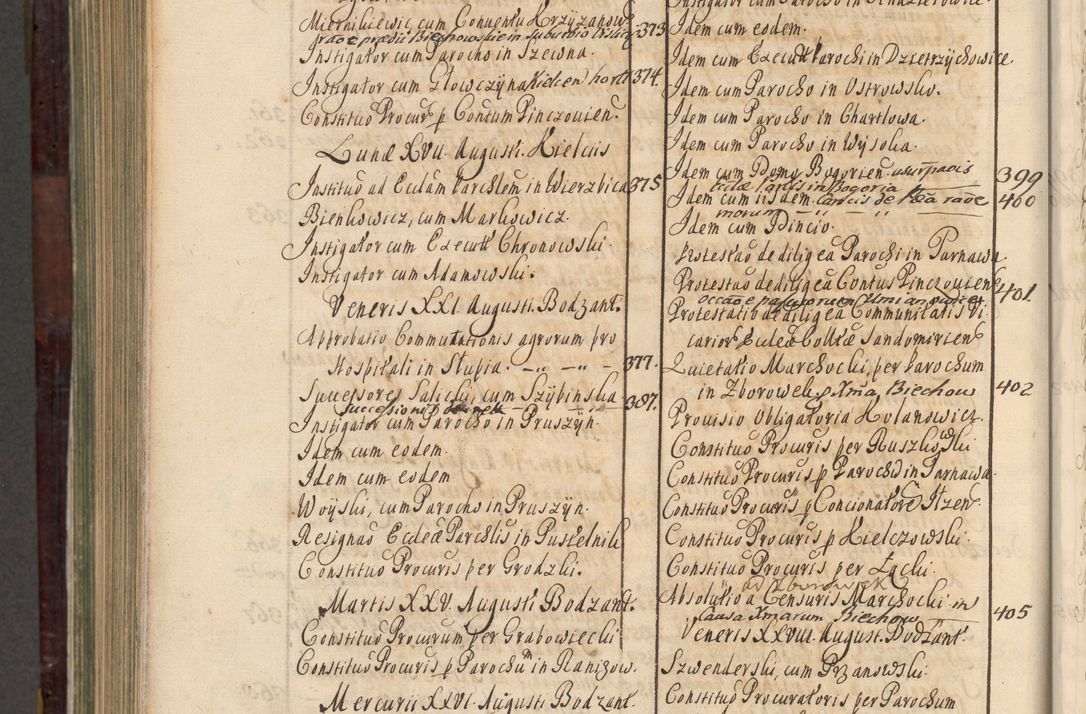 Mierniłicewic, cum Conventu Krzyzanow
373
Instigator cum Parocho in Szewna.
Instigator cum Głowczyna Kielcen horti 374.
Constituõ Procur. p Contum Pinczovien.
Lunæ XVII. Augusti. Kielciis
Institiuõ ad Ecclam Parchlem in Wierzbica 375
Bienkowicz, cum Markowicz.
Instigator cum Execut Chronowski.
Instigator cum Adamowski.
Veneris XXI. Augusti. Bodzant.
Approbatio Commutationis agrorum pro
Hospitali in Stupia. 377.
Successores Saliccki, cum Szybinska 387.
Instigator cum Parocho in Pruszÿn.
Idem cum eodem.
Idem cum eodem
Woÿski, cum Parocho in Pruszÿn.
Resignaõ Ecclea Parchlis in Pustelnik
Constituõ Procuris per Grodzki.
Martis XXV. Augusti Bodzant.
Constituõ Procurum per Grabowiecki
Constituõ Procuris p Parochũ in Ranizow.
Mercurii XXVI. Augusti Bodzant.
Idem cum eodem.
Idem cum Execut Parochi in Dzietrzychowice
Idem cum Parocho in Ostrowsko.
Idem cum Parocho in Charłłowa.
Idem cum Parocho in Wÿsoka.
Idem cum Domo Bogorien. usurpaõis 399
Ecclæ Parlis in Bogoria
Idem cum iisdem. 400
Idem cum Pincio.
Protestaõ de diligea Parochi in Parnawa.
Protestaõ de diligea Contus Pinczovien 401.
Protestatio de diligea Communitatis Vi
carior Ecclea Collæ Sandomirien
Quietatio Marchocki, per Parochum
in Zborowek, p Xma, Biechow 402
Provisio Obligatoria Kolanowicz.
Constituõ Procuris per Ruszkowski.
Constituõ Procuris p Parochũ in Parnawa.
Constituõ Procuris p Concionatorẽ Itzen.
Constituõ Procuris p Kielczowski.
Constituõ Procuris per Łącki.
ad Zborowek
Absolutio a Censuris Marchocki in
causa Xmarum Biechow 405
Veneris XXVIII. August. Bodzant.
Szwenderski, cum Przanowski.
Constituõ Procuratoris per Parochum